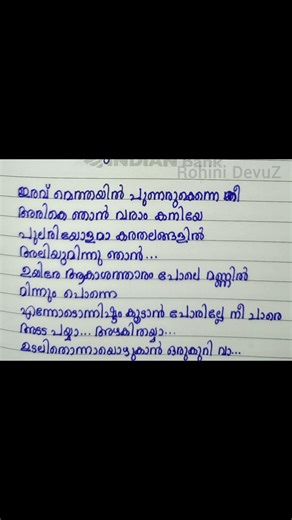 INDIAN Bank
Rohini DevuZ
ഇരവ് മെത്തയിൻ പുണരുകെന്നെ നീ
അരികെ ഞാൻ വരാം കനിയേ
പുലരിയോളമാ കരതലങ്ങളിൽ
അലിയുമിന്നു ഞാൻ...
ഉയിരേ ആകാശത്താരം പോലെ മണ്ണിൽ
മിന്നും പൊന്നെ
എന്നോടൊന്നിഷ്ടം കൂടാൻ പോരില്ലേ നീ ചാരെ
അടട പയ്യാ... അഴകിതയ്യാ...
ഉടലിതൊന്നായൊഴുകാൻ ഒരുകുറി വാ...